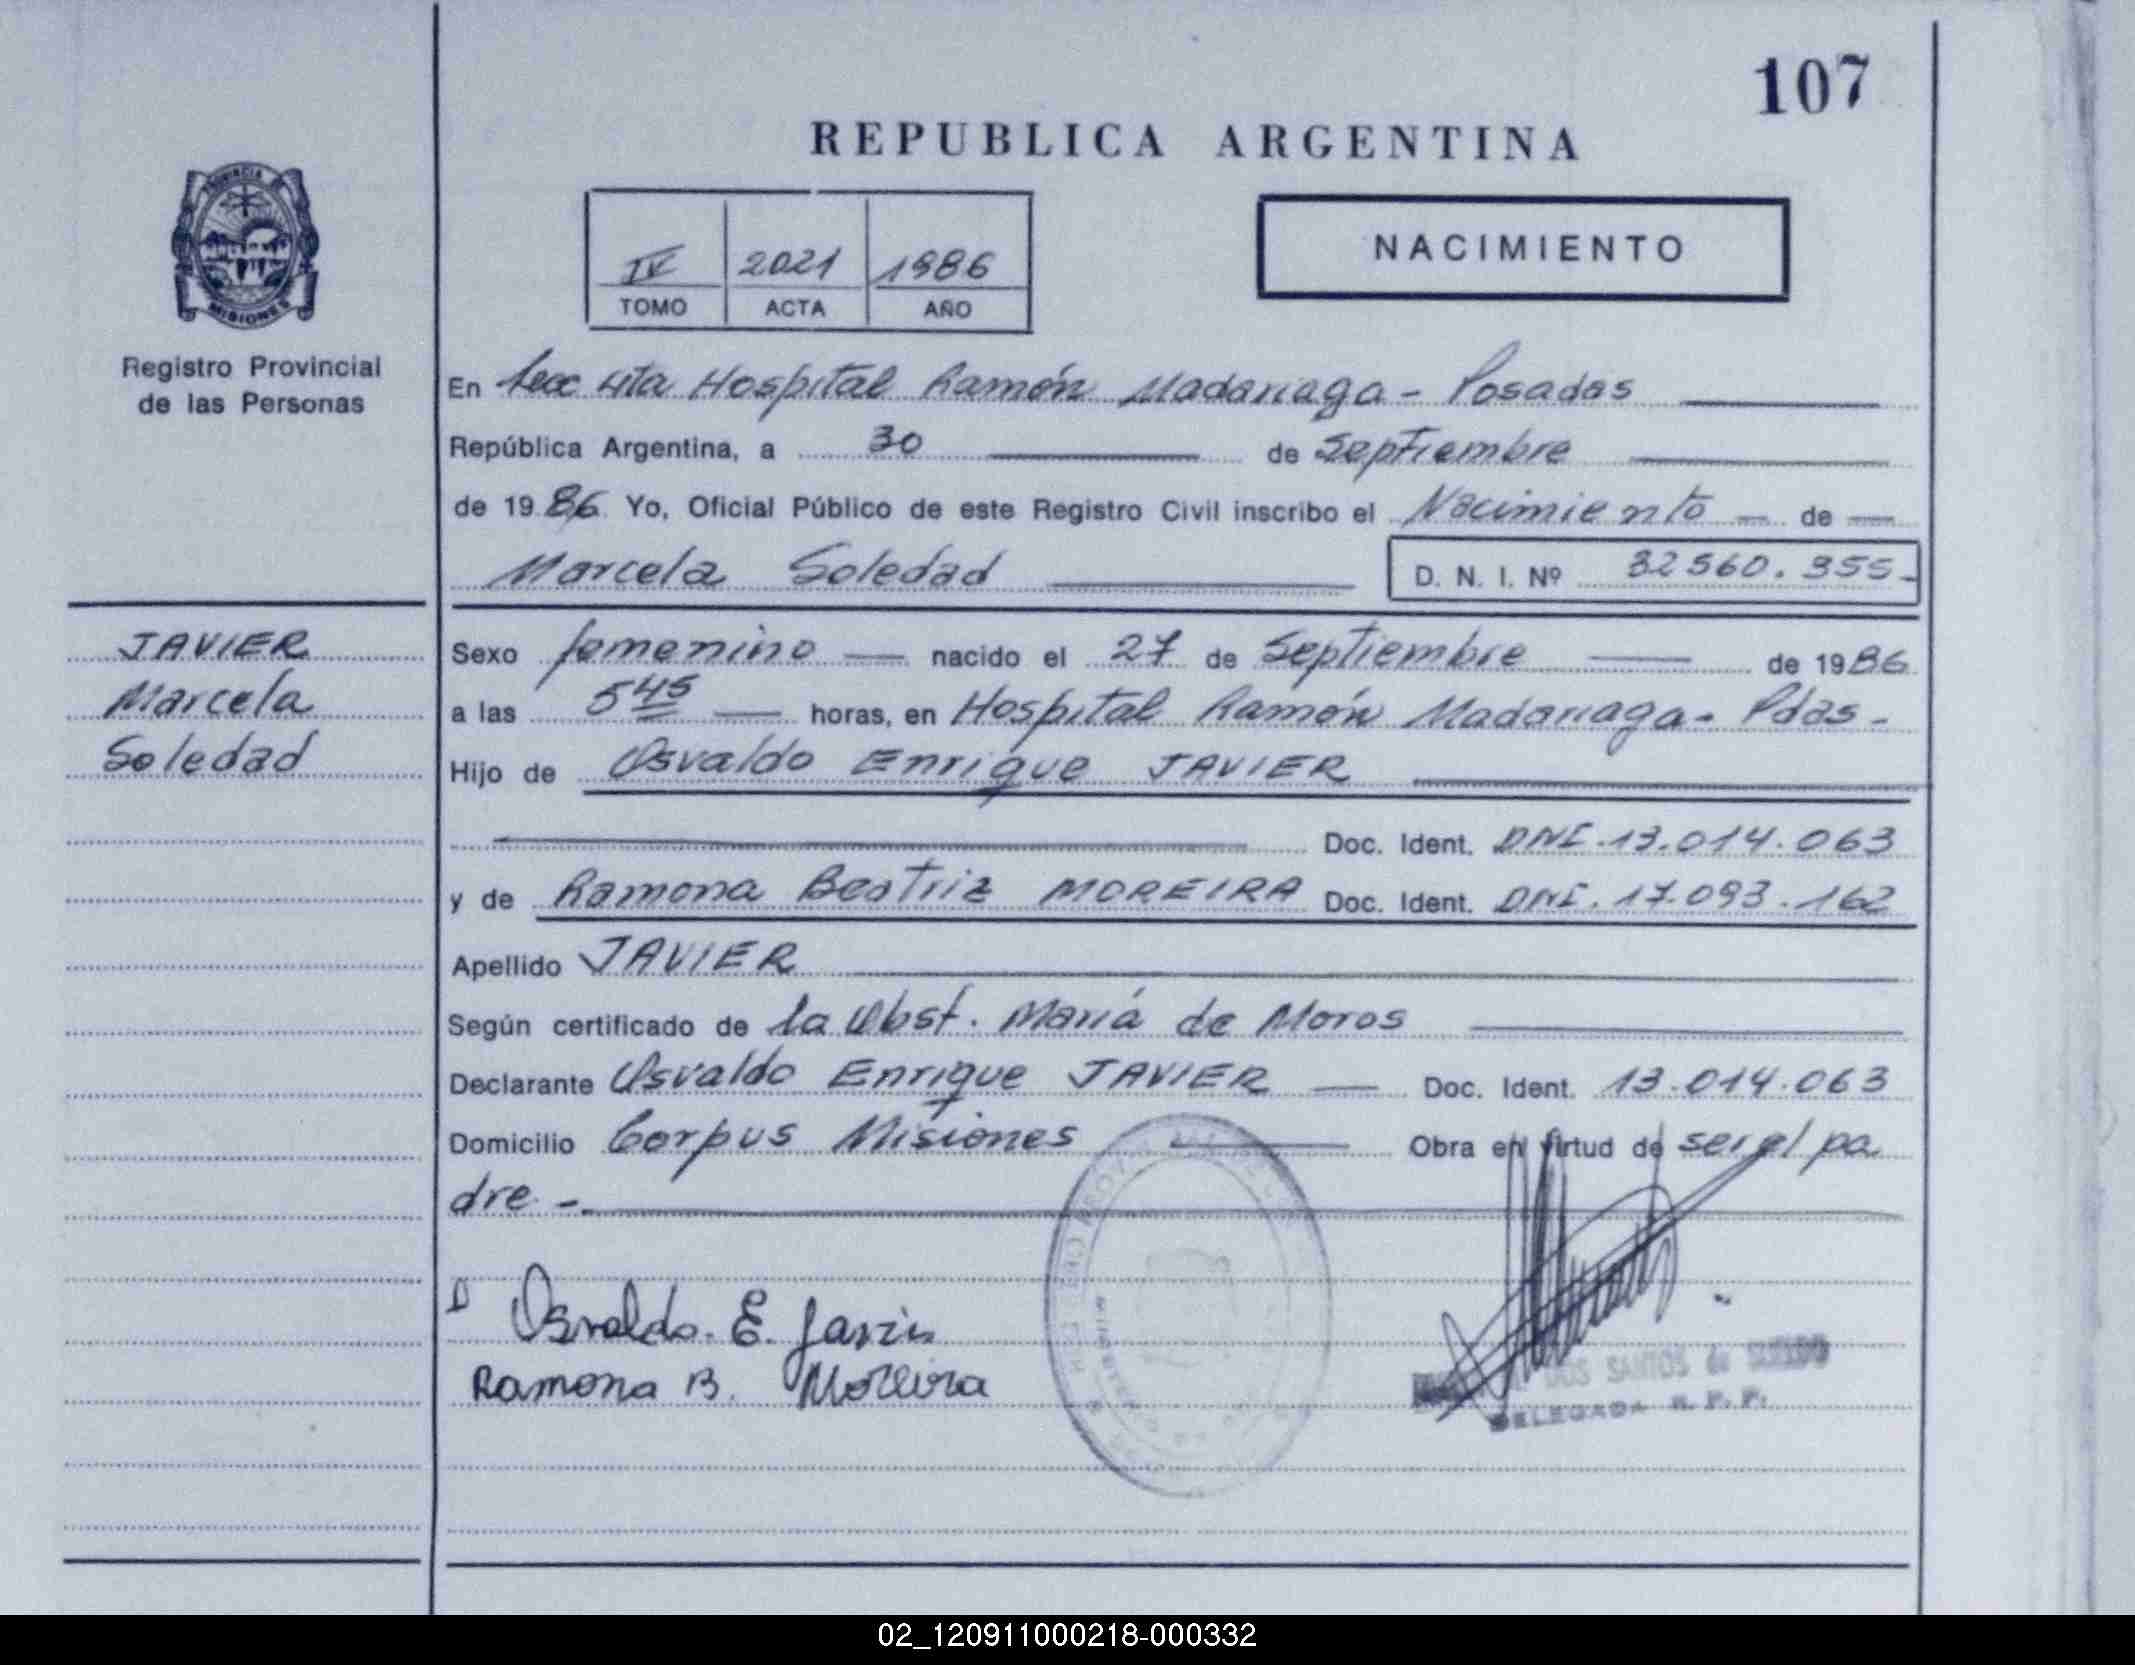 107
REPUBLICA ARGENTINA
NACIMIENTO
IV 2021 1986
TOMO ACTA AÑO
PROVINCIA DE
MISIONES
Registro Provincial
de las Personas
En Secc 4ta Hospital Ramón Madariaga - Posadas
República Argentina, a 30 de Septiembre
de 1986 Yo, Oficial Público de este Registro Civil inscribo el Nacimiento de
Marcela Soledad D. N. I. Nº 32560.355-
JAVIER
Marcela
Soledad
Sexo femenino nacido el 27 de Septiembre de 1986
a las 5 45 horas, en Hospital Ramón Madariaga - Pdas -
Hijo de Osvaldo Enrique JAVIER
Doc. Ident. DNI.13.014.063
y de Ramona Beatriz MOREIRA Doc. Ident. DNI.17.093.162
Apellido JAVIER
Según certificado de la Obst. María de Moros
Declarante Osvaldo Enrique JAVIER Doc. Ident. 13.014.063
Domicilio Corpus Misiones Obra en virtud de ser el pa
dre -
Osvaldo. E. Javier
Ramona B. Moreira
DOS SANTOS de
DELEGADA R. P. P.
02_120911000218-000332